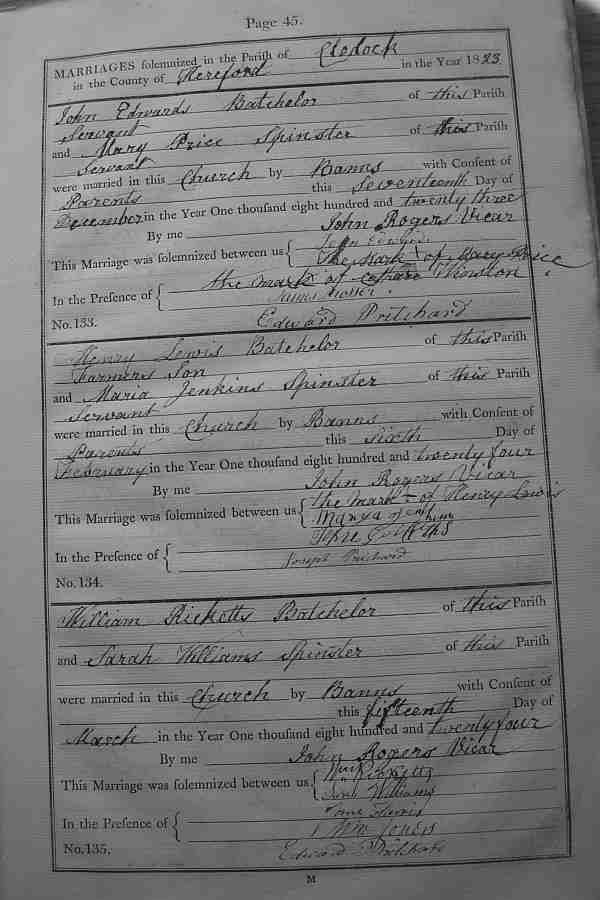 Page 45.
MARRIAGES solemnized in the Parish of Clodock
in the County of Hereford in the Year 1823.
John Edwards Batchelor of this Parish
Servant
and Mary Price Spinster of this Parish
Servant
were married in this Church by Banns with Consent of
Parents this Seventeenth Day of
December in the Year One thousand eight hundred and twenty three
By me John Rogers Vicar
This Marriage was solemnized between us { John Edwards
The Mark of Mary Price
In the Presence of { the mark of Howton
James
No. 133. Edward Pritchard
Henry Lewis Batchelor of this Parish
Farmers Son
and Maria Jenkins Spinster of this Parish
Servant
were married in this Church by Banns with Consent of
Parents this Sixth Day of
February in the Year One thousand eight hundred and twenty four
By me John Rogers Vicar
This Marriage was solemnized between us { the mark of Henry Lewis
In the Presence of {
Joseph Pritchard
No. 134.
William Ricketts Batchelor of this Parish
and Sarah Williams Spinster of this Parish
were married in this Church by Banns with Consent of
this fifteenth Day of
March in the Year One thousand eight hundred and twenty four
By me John Rogers Vicar
This Marriage was solemnized between us { Wm Ricketts
Williams
In the Presence of { Lewis
Wm Jones
No. 135. Edward
M